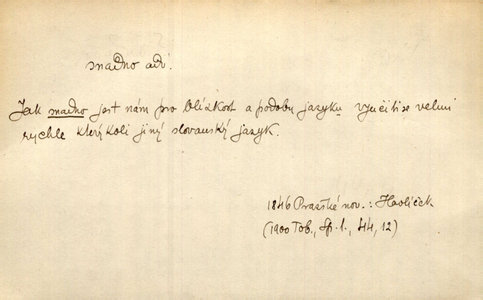 snadno adv.
Jak snadno jest nám pro blízkost a podobu jazyku vyučiti se velmi
rychle který koli jiný slovanský jazyk.
1846 Pražské nov.: Havlíček
(1900 Tob., Sp. 1, 44, 12)